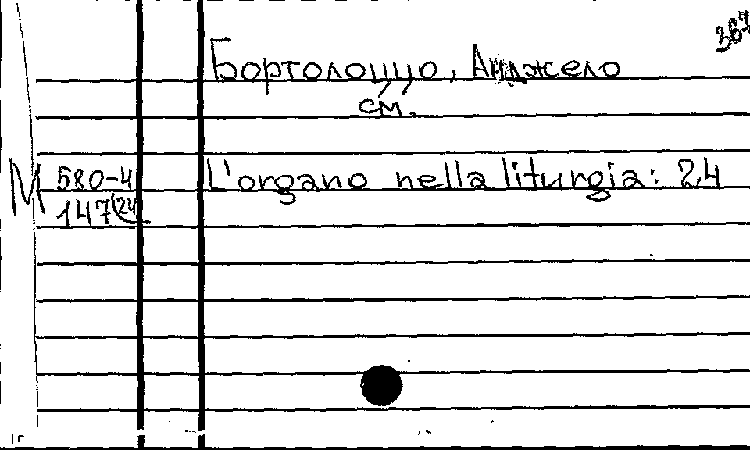 367
Бортолоццо, Анджело
см.
М 580-4 L'organo nella liturgia: 24
147(24